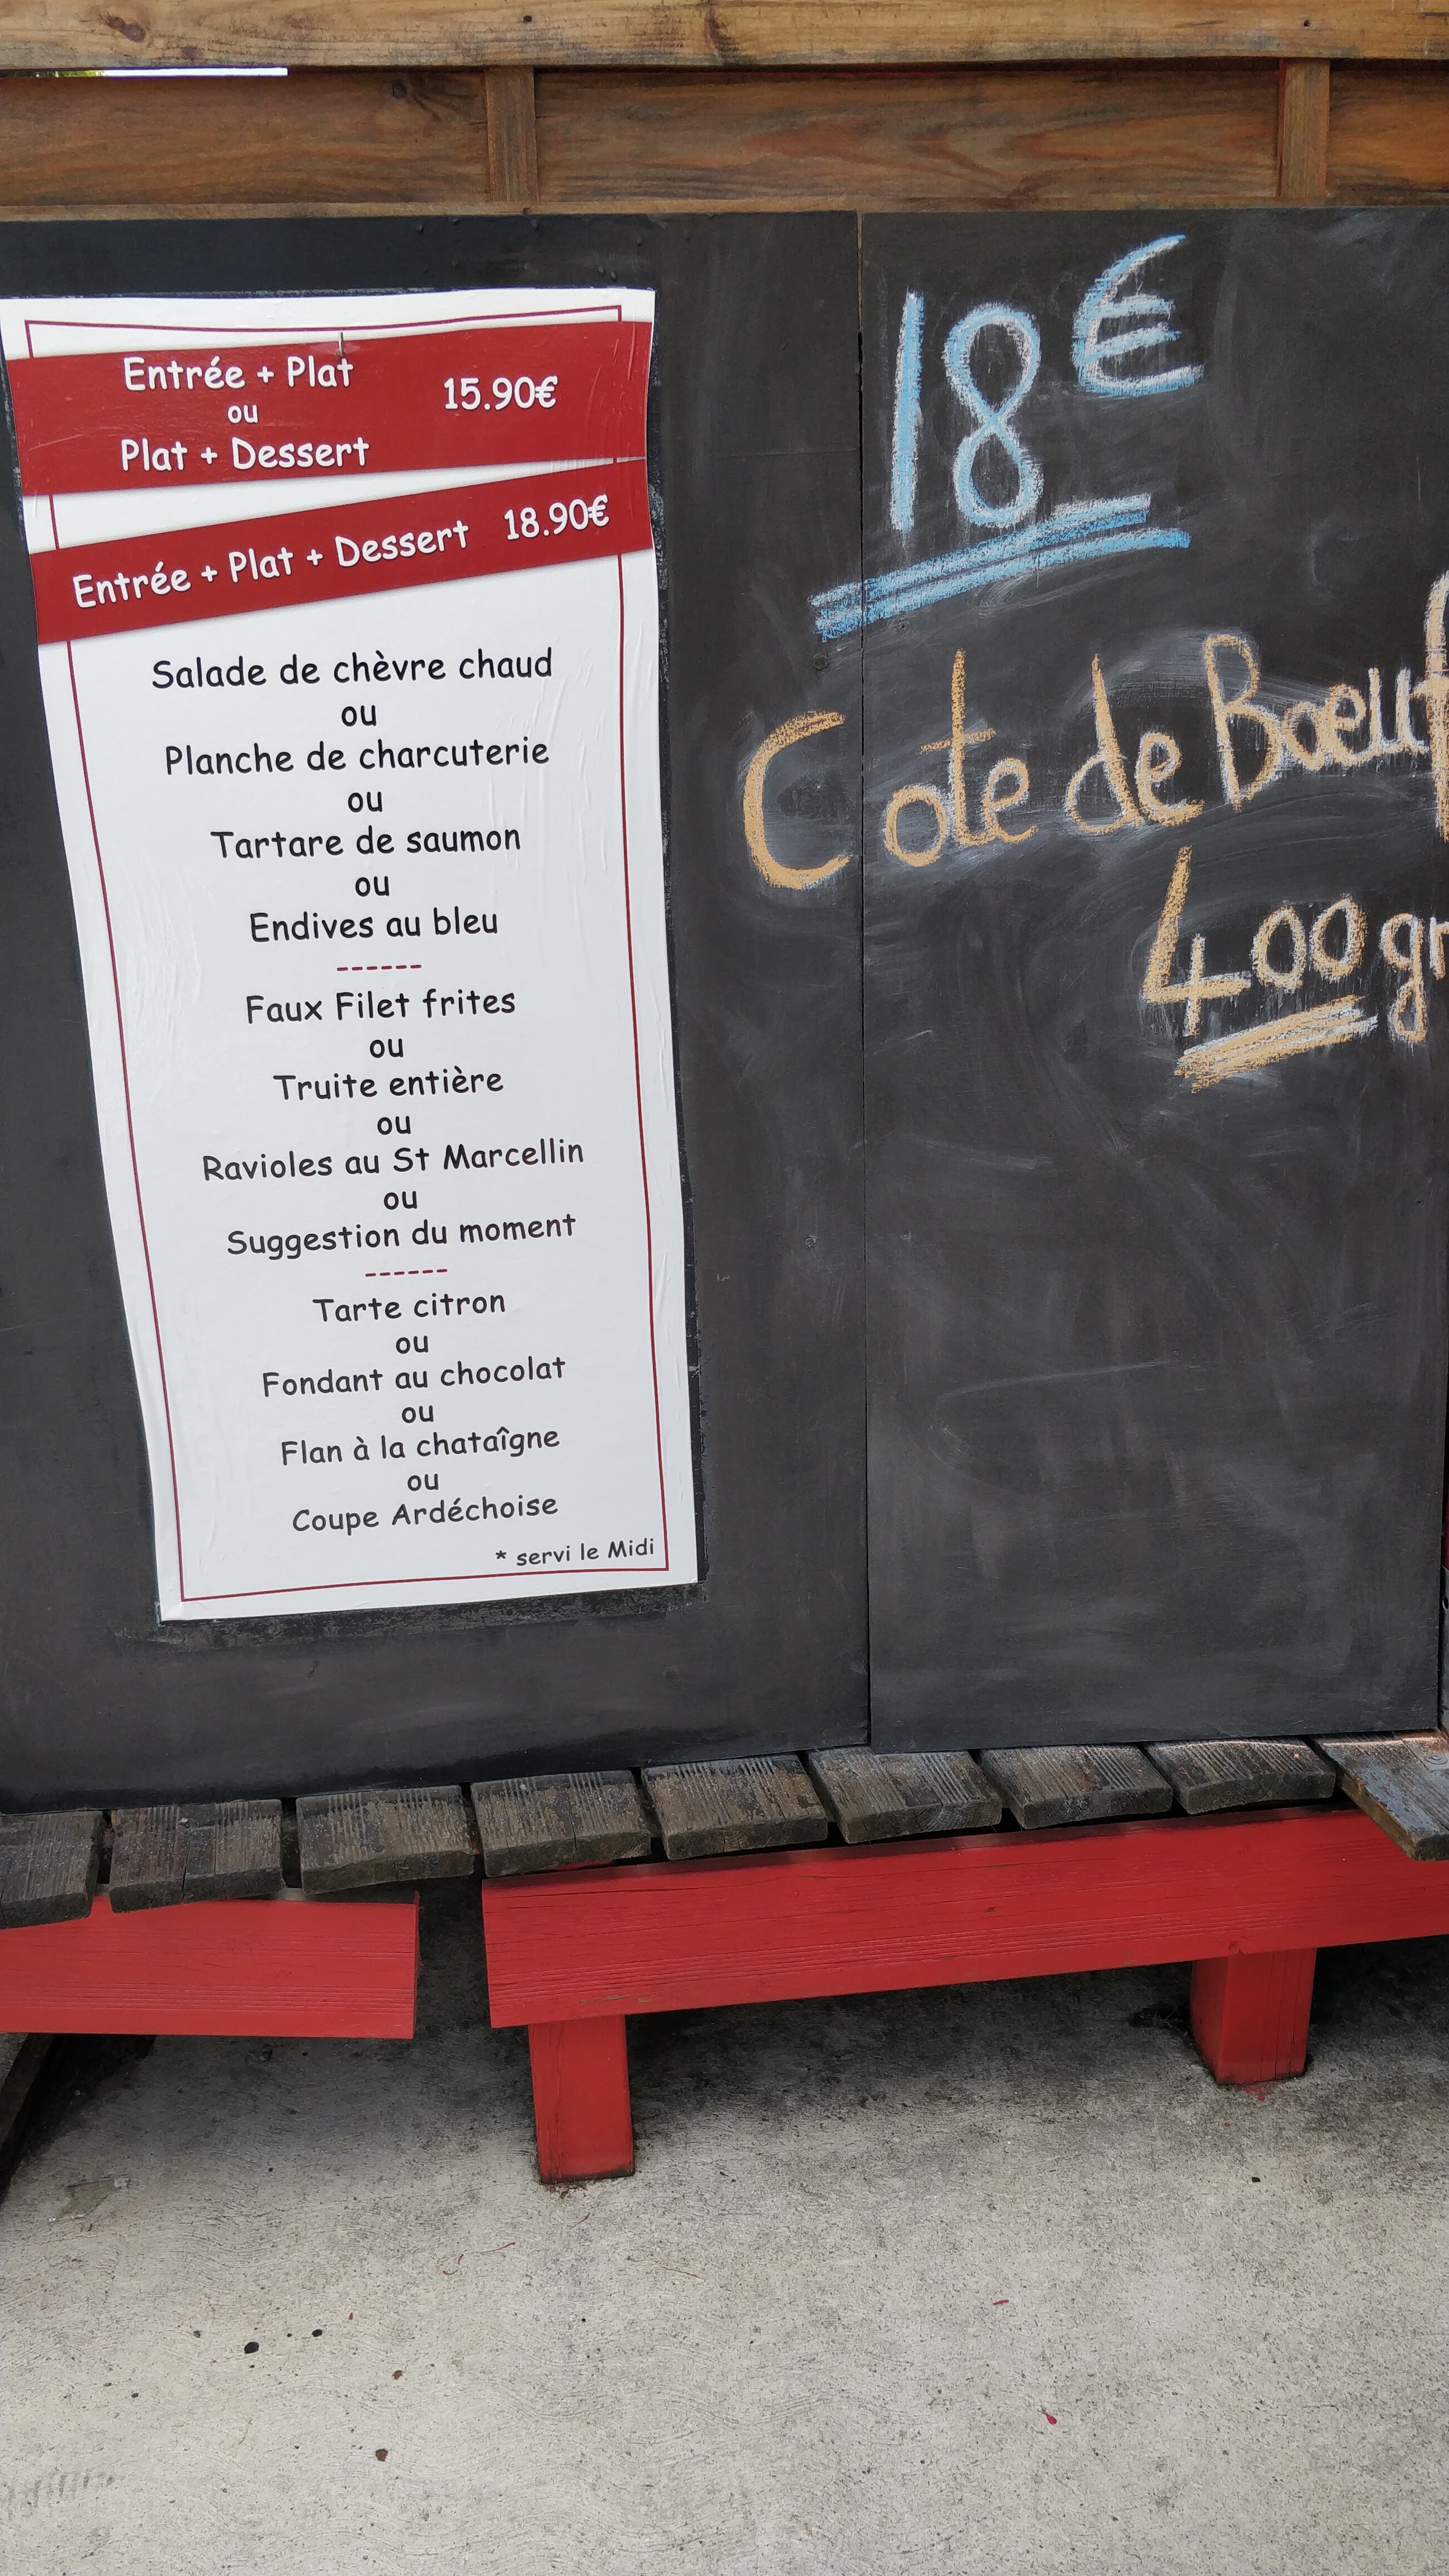 Entrée + Plat
ou
Plat + Dessert
15.90€
Entrée + Plat + Dessert 18.90€
Salade de chèvre chaud
ou
Planche de charcuterie
ou
Tartare de saumon
ou
Endives au bleu
------
Faux Filet frites
ou
Truite entière
ou
Ravioles au St Marcellin
ou
Suggestion du moment
------
Tarte citron
ou
Fondant au chocolat
ou
Flan à la chataîgne
ou
Coupe Ardéchoise
* servi le Midi
18€
Cote de Bœuf
400gr